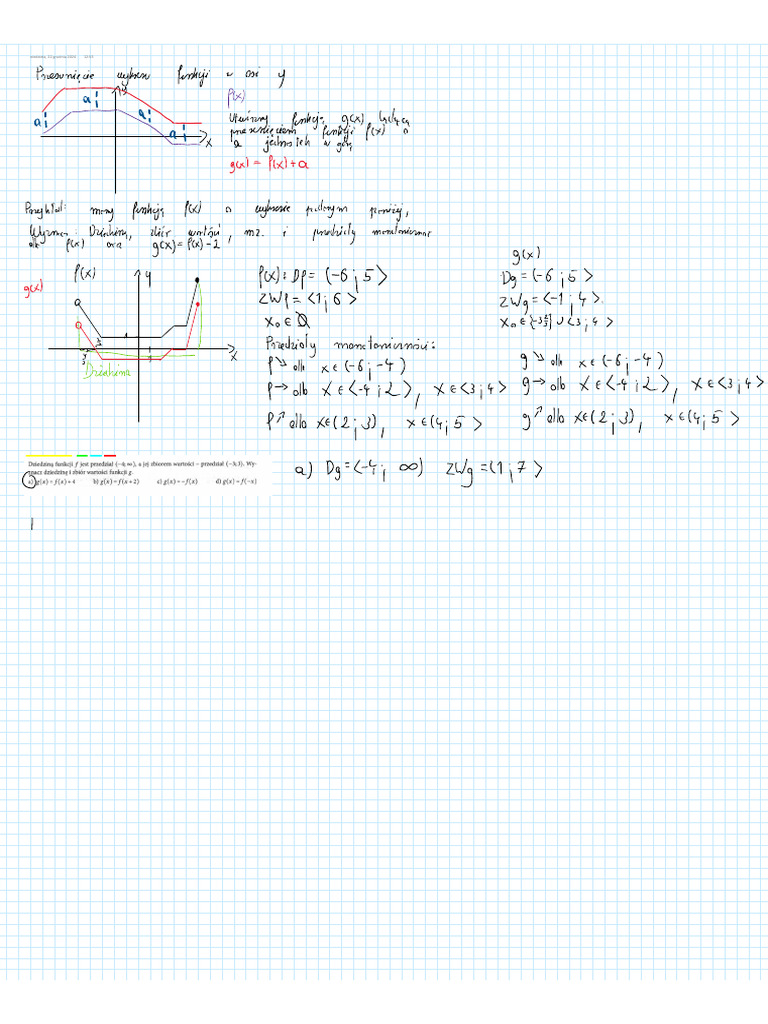 Przesunięcie wykresu funkcji w osi y
y
f(x)
a
a
a
a
x
Utwórzmy funkcję g(x) będącą
przesunięciem funkcji f(x) o
a jednostek w górę
g(x) = f(x) + a
Przykład: mamy funkcję f(x) o wykresie podanym poniżej,
Wyznacz: Dziedzinę, zbiór wartości, mz. i przedziały monotoniczności
dla f(x) oraz g(x) = f(x) - 2
g(x)
f(x)
y
g(x)
x
Dziedzina
f(x): Df = (-6; 5>
Dg = (-6; 5>
ZWf = <1; 6>
ZWg = <-1; 4>.
x₀ ∈ Ø
∪ <3; 4>
Przedziały monotoniczności:
f↘ dla x ∈ (-6; -4)
g↘ dla x ∈ (-6; -4)
f→ dla x ∈ <-4; 2>, x ∈ <3; 4>
g→ dla x ∈ <-4; 2>, x ∈ <3; 4>
f↗ dla x ∈ (2; 3), x ∈ (4; 5>
g↗ dla x ∈ (2; 3), x ∈ (4; 5>
Dziedziną funkcji f jest przedział ⟨-4; ∞), a jej zbiorem wartości – przedział (-3; 3⟩. Wy-
znacz dziedzinę i zbiór wartości funkcji g.
a) g(x) = f(x) + 4 b) g(x) = f(x + 2) c) g(x) = -f(x) d) g(x) = f(-x)
a) Dg = <-4; ∞) ZWg = (1; 7>